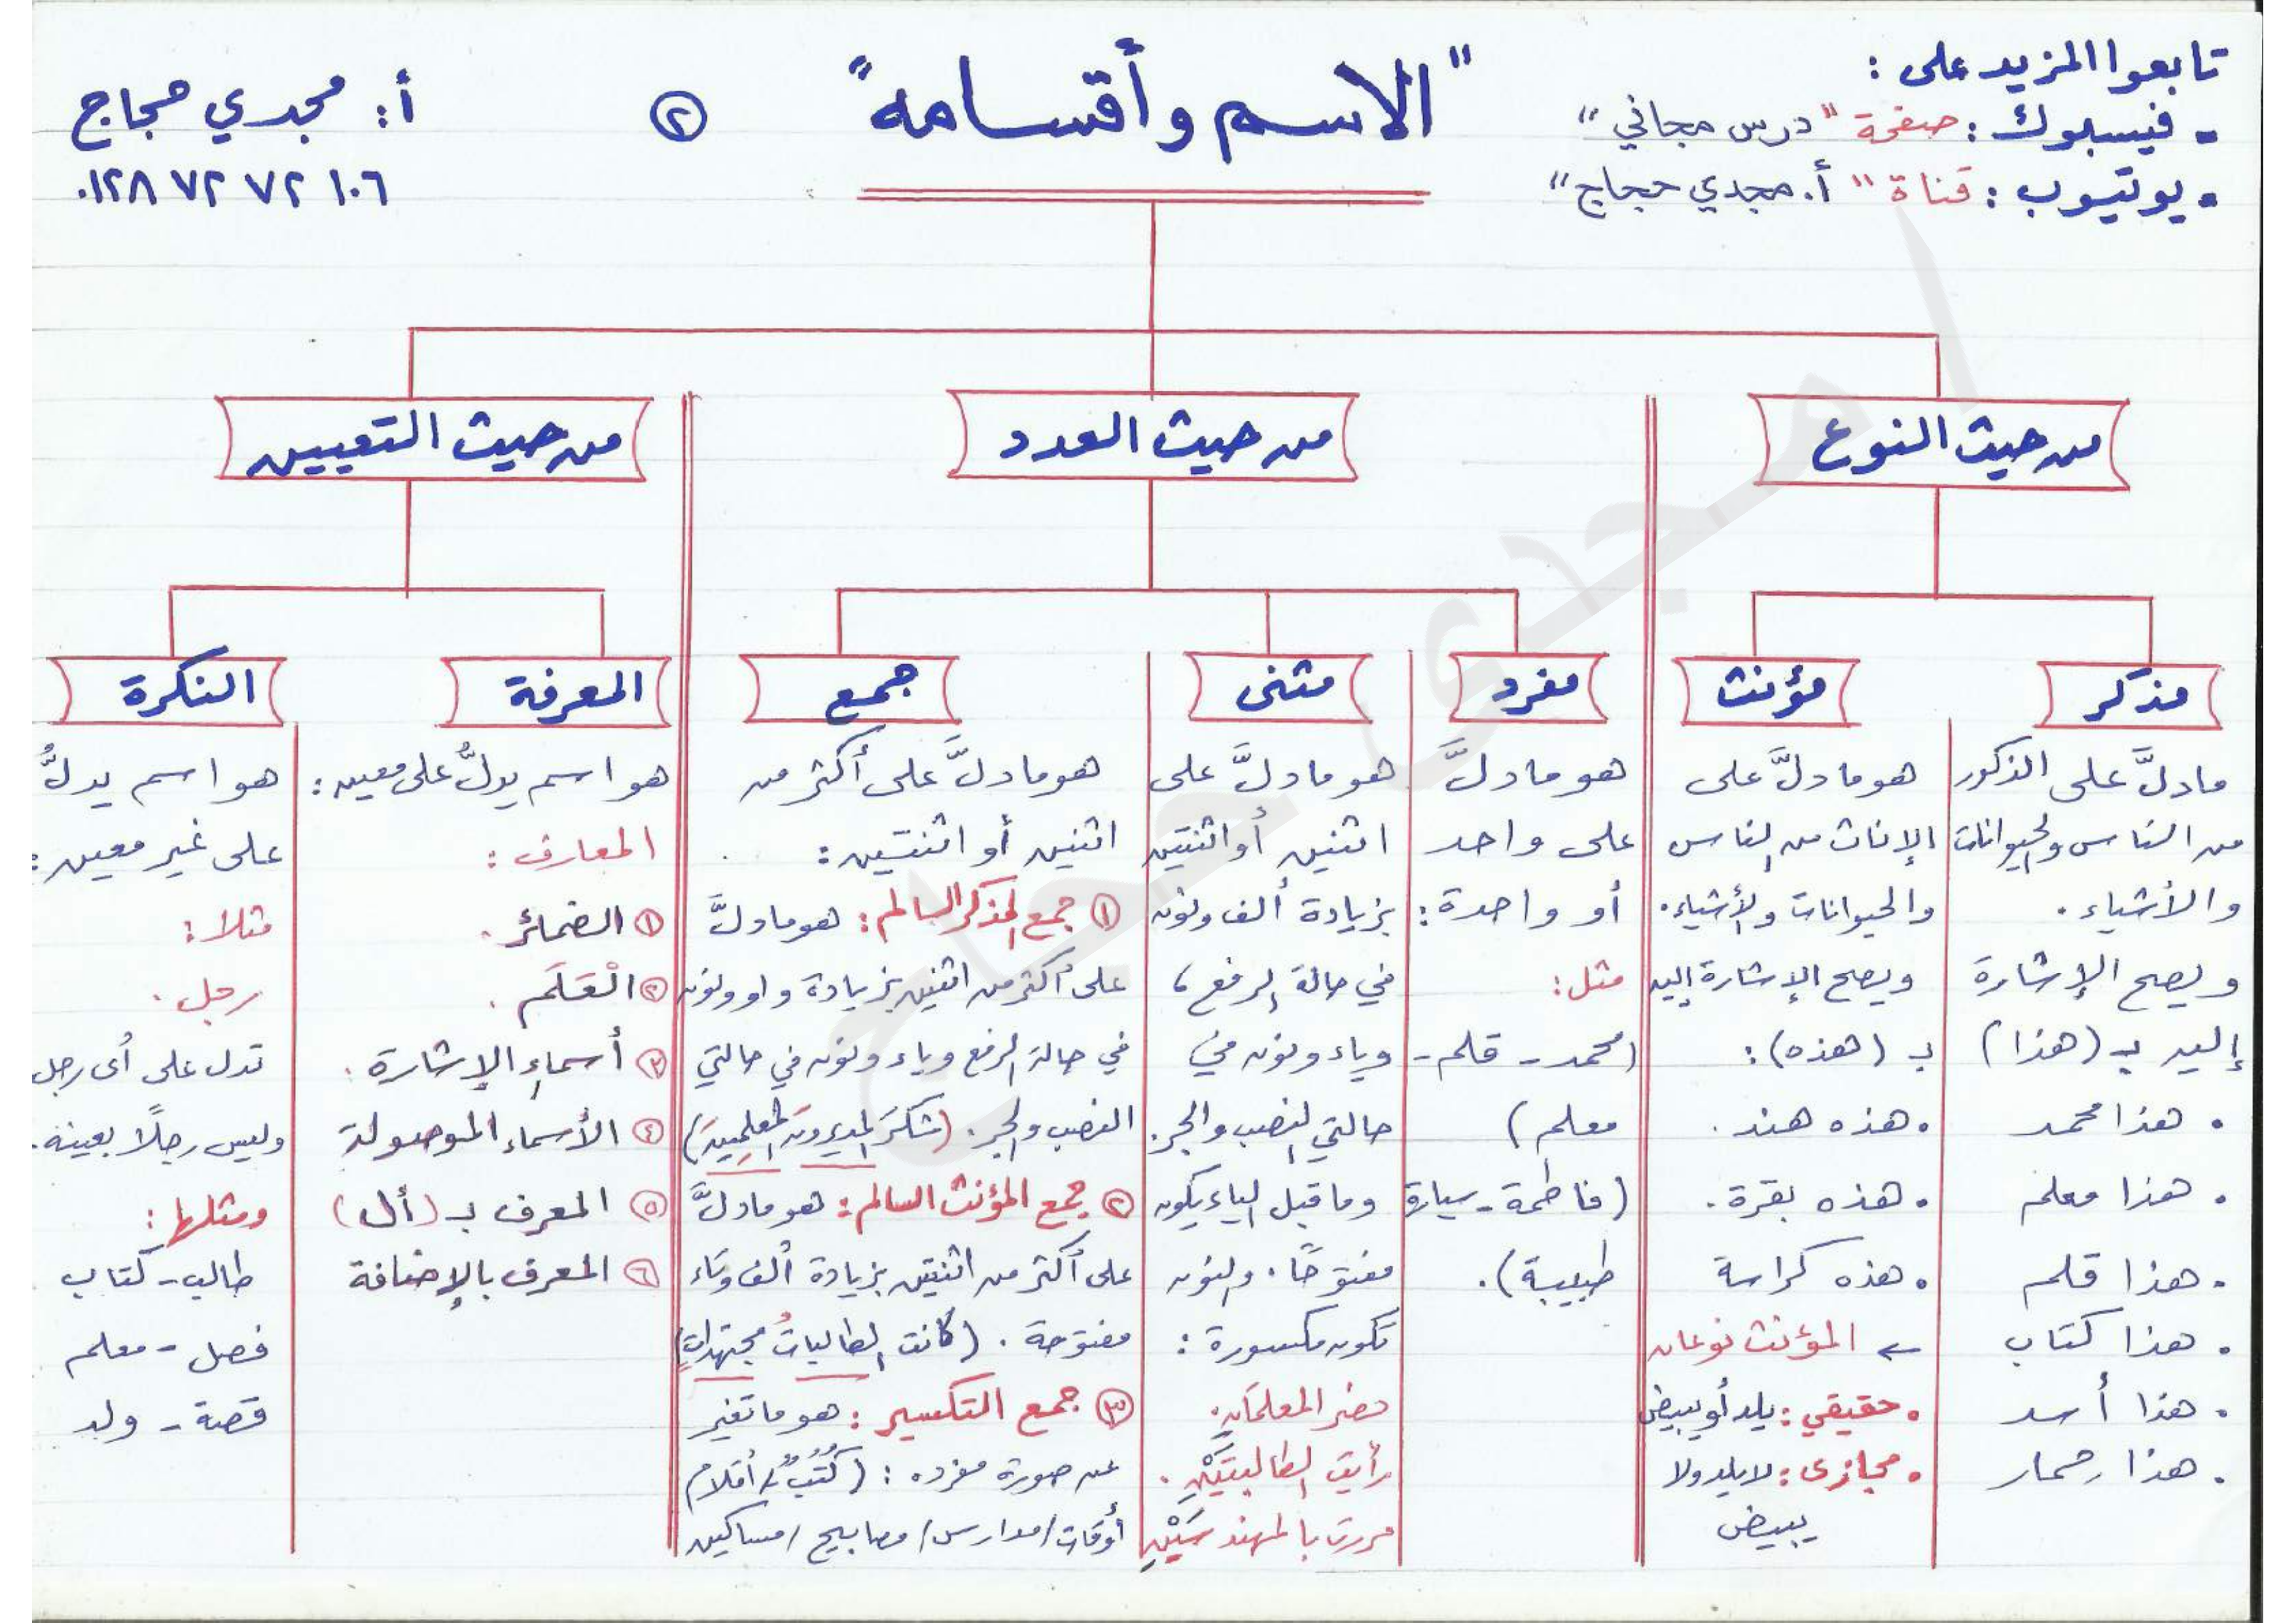 تابعوا المزيد على :
- فيسبوك : صفحة "درس مجاني"
- يوتيوب : قناة "أ. مجدي حجاج"
"الاسم وأقسامه"
٢
أ: مجدي حجاج
٠١٢٨ ٧٢ ٧٢ ١٠٦
من حيث النوع
من حيث العدد
من حيث التعيين
مذكر
ما دلَّ على الذكور
من الناس والحيوانات
والأشياء .
ويصح الإشارة
إليه بـ (هذا)
. هذا محمد
. هذا معلم
. هذا قلم
. هذا كتاب
. هذا أسد
. هذا حمار
مؤنث
هو ما دلَّ على
الإناث من الناس
والحيوانات والأشياء .
ويصح الإشارة إليه
بـ (هذه) :
. هذه هند .
. هذه بقرة .
. هذه كراسة
← المؤنث نوعان
. حقيقي : يلد أو يبيض
. مجازى : لا يلد ولا
يبيض
مفرد
هو ما دلَّ
على واحد
أو واحدة :
مثل :
(محمد - قلم -
معلم )
(فاطمة - سيارة
طبيبة) .
مثنى
هو ما دلَّ على
اثنين أو اثنتين
بزيادة ألف ونون
في حالة الرفع ،
وياء ونون في
حالتي النصب والجر .
وما قبل الياء يكون
مفتوحًا . والنون
تكون مكسورة :
حضر المعلمَانِ .
رأيت الطالبتَيْنِ .
مررت بالمهندسَيْنِ
جمع
هو ما دلَّ على أكثر من
اثنين أو اثنتين :
١ جمع المذكر السالم : هو ما دلَّ
على أكثر من اثنين بزيادة واو ونون
في حالة الرفع وياء ونون في حالتي
النصب والجر . (شكرَ المديرونَ المعلمِينَ)
٢ جمع المؤنث السالم : هو ما دلَّ
على أكثر من اثنتين بزيادة ألف وتاء
مفتوحة . (كانت الطالباتُ مجتهداتٍ)
٣ جمع التكسير : هو ما تغير
عن صورة مفرده : (كُتُبٌ / أقلام
أوقات / مدارس / مصابيح / مساكين
المعرفة
هو اسم يدلُّ على معين :
المعارف :
١ الضمائر .
٢ الْعَلَم .
٣ أسماء الإشارة .
٤ الأسماء الموصولة
٥ المعرف بـ (أل)
٦ المعرف بالإضافة
النكرة
هو اسم يدلُّ
على غير معين :
مثلا :
رجل .
تدل على أى رجل
وليس رجلًا بعينه .
ومثلها :
طالب - كتاب
فصل - معلم
قصة - ولد
أ/ مجدى حجاج